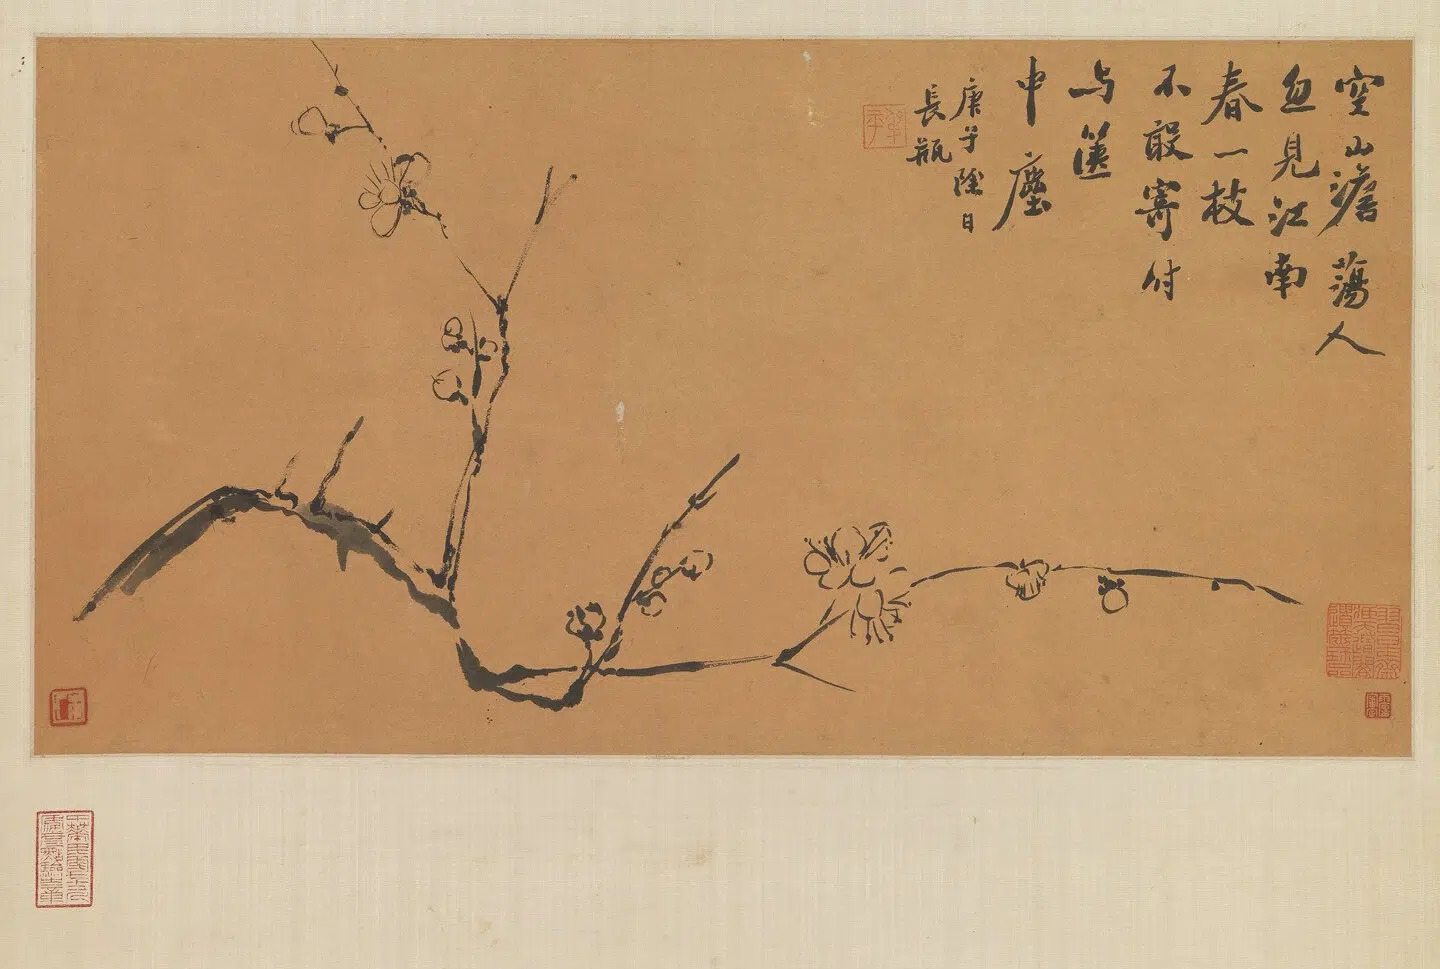 空山澹蕩人
忽見江南
春一枝
不敢寄付
与篋
中塵
庚子除日
長瓶